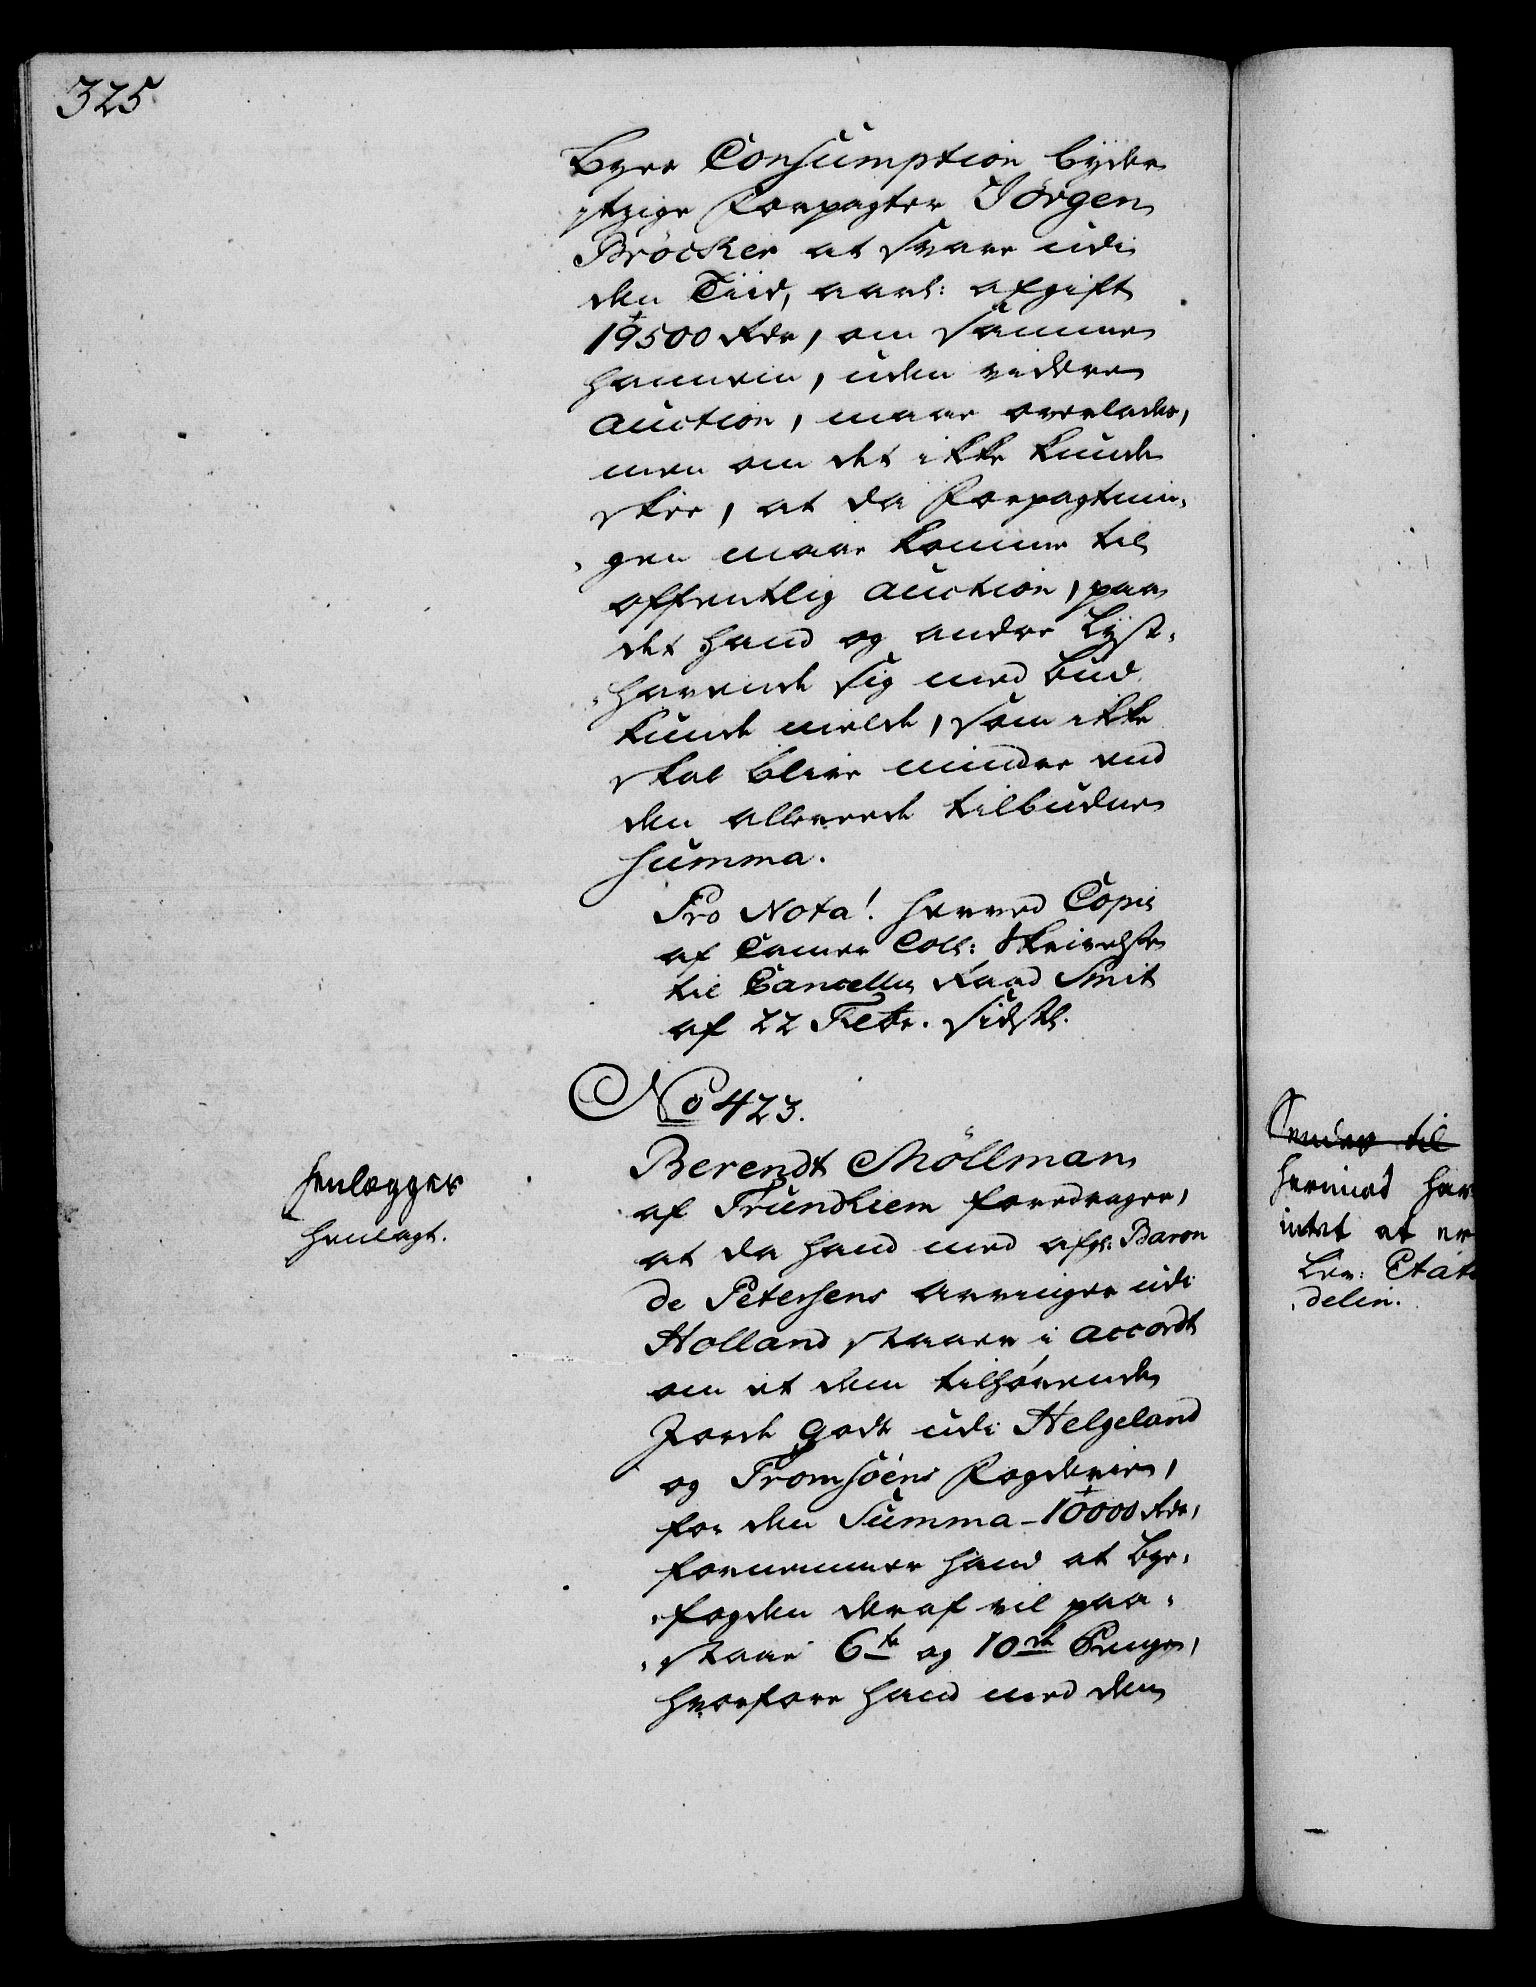 325
Byes Consumption byder
itzige Forpagter Jörgen
Bröcker at svare udi
den Tiid, aarl: afgift
19500 Rdr, om samme
hannem, uden videre
auction, maae overlades,
men om det ikke kunde
skee, at da Forpagtnin-
gen maae komme til
offentlig auction, paa
det hand og andre Lyst-
havende sig med bud
kunde melde, som ikke
skal blive mindre end
den allereede tilbudne
Summa.
Pro Nota! herved Copie
af Camer Coll: Skrivelse
til Cancellie Raad Smit
af 22 Febr. sidstl.
No 423.
Henlegges
henlagt.
Berendt Möllman
af Trundhiem foredrager,
at da hand med afg: Baron
de Petersens arvinger udi
Holland staaer i accordt
om et dem tilhörende
Jorde Gods udi Helgeland
og Tromsöens Fogderier,
for den Summa 10000 Rdr,
fornemmer hand at bye-
fogden deraf vil paa-
staae 6te og 10de Penge,
hvorfore hand med den
Sendes til
hermed har
intet at er
Lev: Etats
delin.